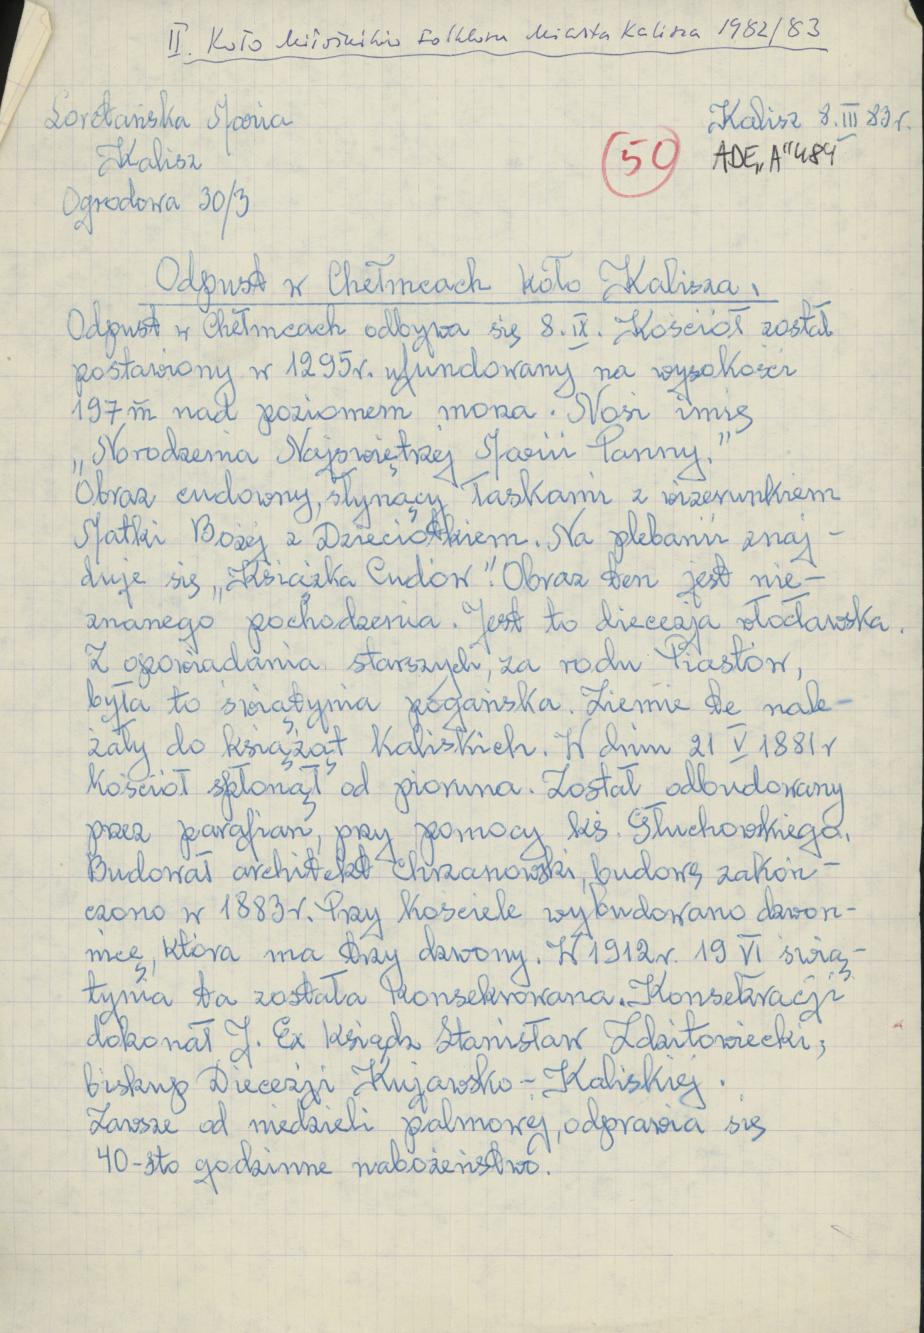 II. Koło Miłośników Folkloru Miasta Kalisza 1982/83
Lorctańska Maria
Kalisz 8.III 83r.
Kalisz
50
ADE„A"484
Ogrodowa 30/3
Odpust w Chełmcach koło Kalisza.
Odpust w Chełmcach odbywa się 8.IX. Kościół został
postawiony w 1295r. ufundowany na wysokości
197 m nad poziomem morza. Nosi imię
„Narodzenia Najświętrzej Marii Panny."
Obraz cudowny, słynący łaskami z wizerunkiem
Matki Bożej z Dzieciątkiem. Na plebanii znaj-
duje się „Książka Cudów". Obraz ten jest nie-
znanego pochodzenia. Jest to diecezja włocławska.
Z opowiadania starszych, za rodu Piastów,
była to świątynia pogańska. Ziemie te nale-
żały do książąt Kaliskich. W dniu 21 V 1881r
Kościół spłonął od pioruna. Został odbudowany
przez parafian, przy pomocy ks. Głuchowskiego.
Budował architekt Chrzanowski, budowę zakoń-
czono w 1883r. Przy kościele wybudowano dzwon-
nicę, która ma trzy dzwony. W 1912r. 19 VI świą-
tynia ta została konsekrowana. Konsekracji
dokonał J. Ex Ksiądz Stanisław Zdzitowiecki,
biskup Diecezji Kujawsko-Kaliskiej.
Zawsze od niedzieli palmowej, odprawia się
40-sto godzinne nabożeństwo.